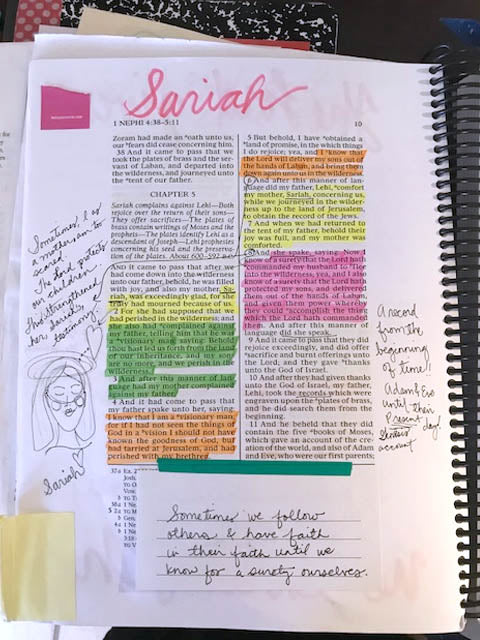 Sariah
1 NEPHI 4:38–5:11
10
Zoram had made an oath unto us,
our fears did cease concerning him.
38 And it came to pass that we
took the plates of brass and the ser-
vant of Laban, and departed into
the wilderness, and journeyed unto
the tent of our father.
CHAPTER 5
Sariah complains against Lehi—Both
rejoice over the return of their sons—
They offer sacrifices—The plates of
brass contain writings of Moses and the
prophets—The plates identify Lehi as a
descendant of Joseph—Lehi prophesies
concerning his seed and the preserva-
tion of the plates. About 600–592
had come down into the wilderness
unto our father, behold, he was filled
with joy, and also my mother, Sa-
riah, was exceedingly glad, for she
truly had mourned because of us.
2 For she had supposed that we
had perished in the wilderness; and
she also had complained against
my father, telling him that he was
a visionary man; saying: Behold
thou hast led us forth from the land
of our inheritance, and my sons
are no more, and we perish in the
wilderness.
3 And after this manner of lan-
guage had my mother complained
against my father.
4 And it had come to pass that
my father spake unto her, saying:
I know that I am a visionary man;
for if I had not seen the things of
God in a vision I should not have
known the goodness of God, but
had tarried at Jerusalem, and had
perished with my brethren.
5 But behold, I have obtained a
land of promise, in the which things
I do rejoice; yea, and I know that
the Lord will deliver my sons out of
the hands of Laban, and bring them
down again unto us in the wilderness.
6 And after this manner of lan-
guage did my father, Lehi, comfort
my mother, Sariah, concerning us,
while we journeyed in the wilder-
ness up to the land of Jerusalem,
to obtain the record of the Jews.
7 And when we had returned to
the tent of my father, behold their
joy was full, and my mother was
comforted.
8 And she spake, saying: Now I
know of a surety that the Lord hath
commanded my husband to flee
into the wilderness; yea, and I also
know of a surety that the Lord hath
protected my sons, and delivered
them out of the hands of Laban,
and given them power whereby
they could accomplish the thing
which the Lord hath commanded
them. And after this manner of
language did she speak.
9 And it came to pass that they did
rejoice exceedingly, and did offer
sacrifice and burnt offerings unto
the Lord; and they gave thanks
unto the God of Israel.
10 And after they had given thanks
unto the God of Israel, my father,
Lehi, took the records which were
engraven upon the plates of brass,
and he did search them from the
beginning.
11 And he beheld that they did
contain the five books of Moses,
which gave an account of the cre-
ation of the world, and also of Adam
and Eve, who were our first parents;
Sometimes I as
a mother am so
scared.
The Lord protects
our children
This strengthened
her, Sariah's,
testimony
Sariah
A record
from the
beginning
of time!
Adam & Eve
until their
Present day!
account
Sometimes we follow
others & have faith
in their faith until we
know for a surety ourselves.